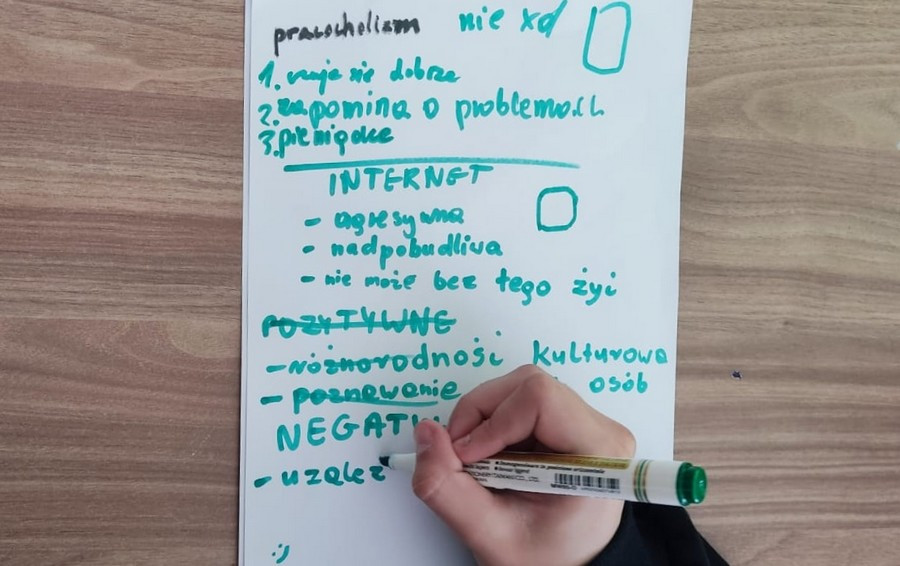 pracocholizm nie xd
1. czuje sie dobrze
2. zapomina o problemach
3. pieniądze
INTERNET
- agresywna
- nadpobudliwa
- nie może bez tego żyć
POZYTYWNE
- różnorodność kulturowa
- poznawanie osób
NEGATYW
- uzależ
:)